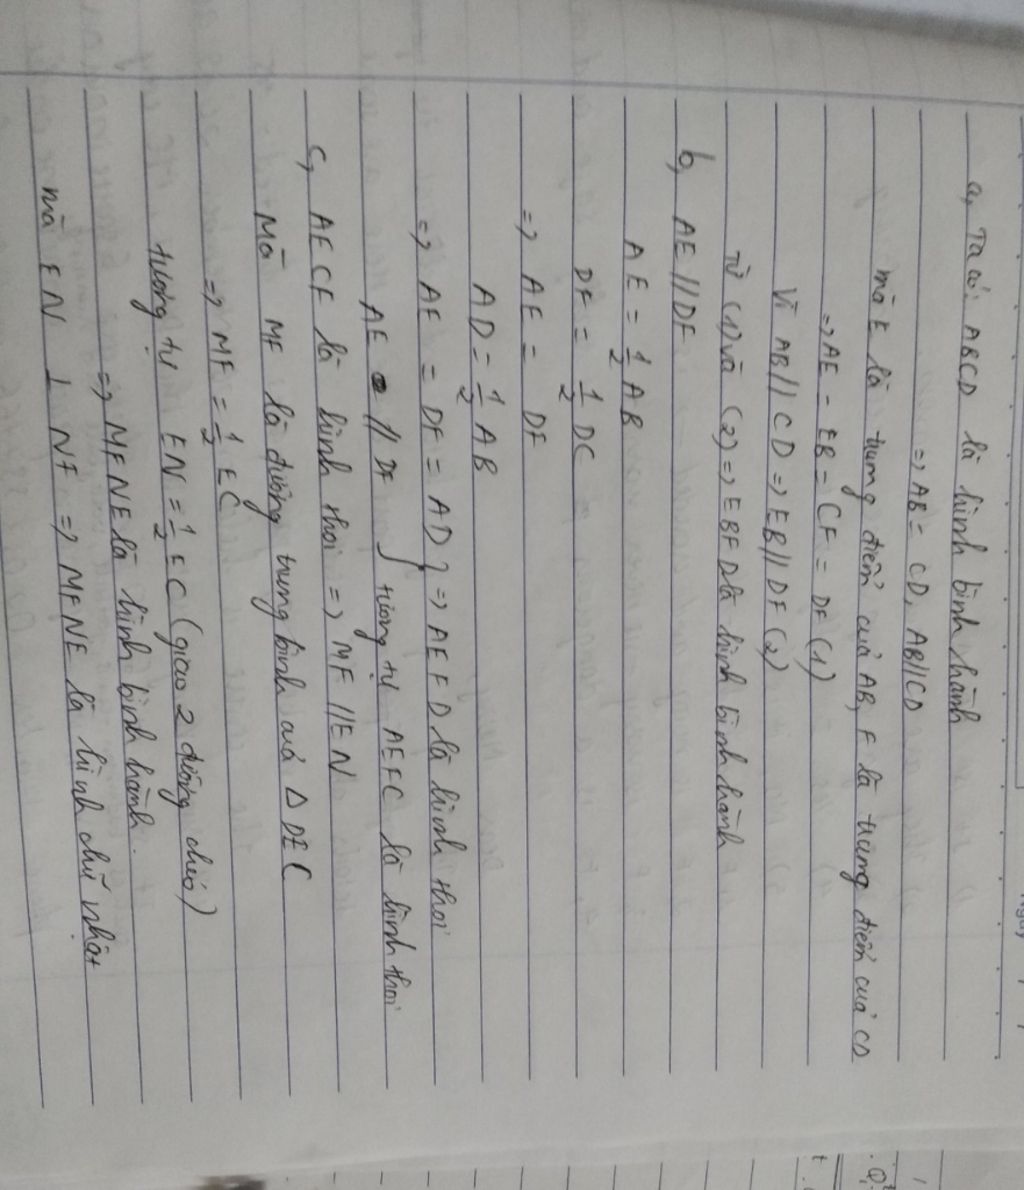 a, Ta có: ABCD là hình bình hành
=> AB = CD, AB//CD
mà E là trung điểm của AB, F là trung điểm của CD
=> AE = EB = CF = DF (1)
Vì AB // CD => EB // DF (2)
Từ (1) và (2) => EBFD là hình bình hành
b, AE // DF
AE = 1/2 AB
DF = 1/2 DC
=> AE = DF
AD = 1/2 AB
=> AE = DF = AD } => AEFD là hình thoi
AE // DF } tương tự AEFC là hình thoi
c, AECF là hình thoi => MF // EN
Mà MF là đường trung bình của Δ DEC
=> MF = 1/2 EC
tương tự EN = 1/2 EC (giao 2 đường chéo)
=> MFNE là hình bình hành.
mà EN ⊥ NF => MFNE là hình chữ nhật
Ngày